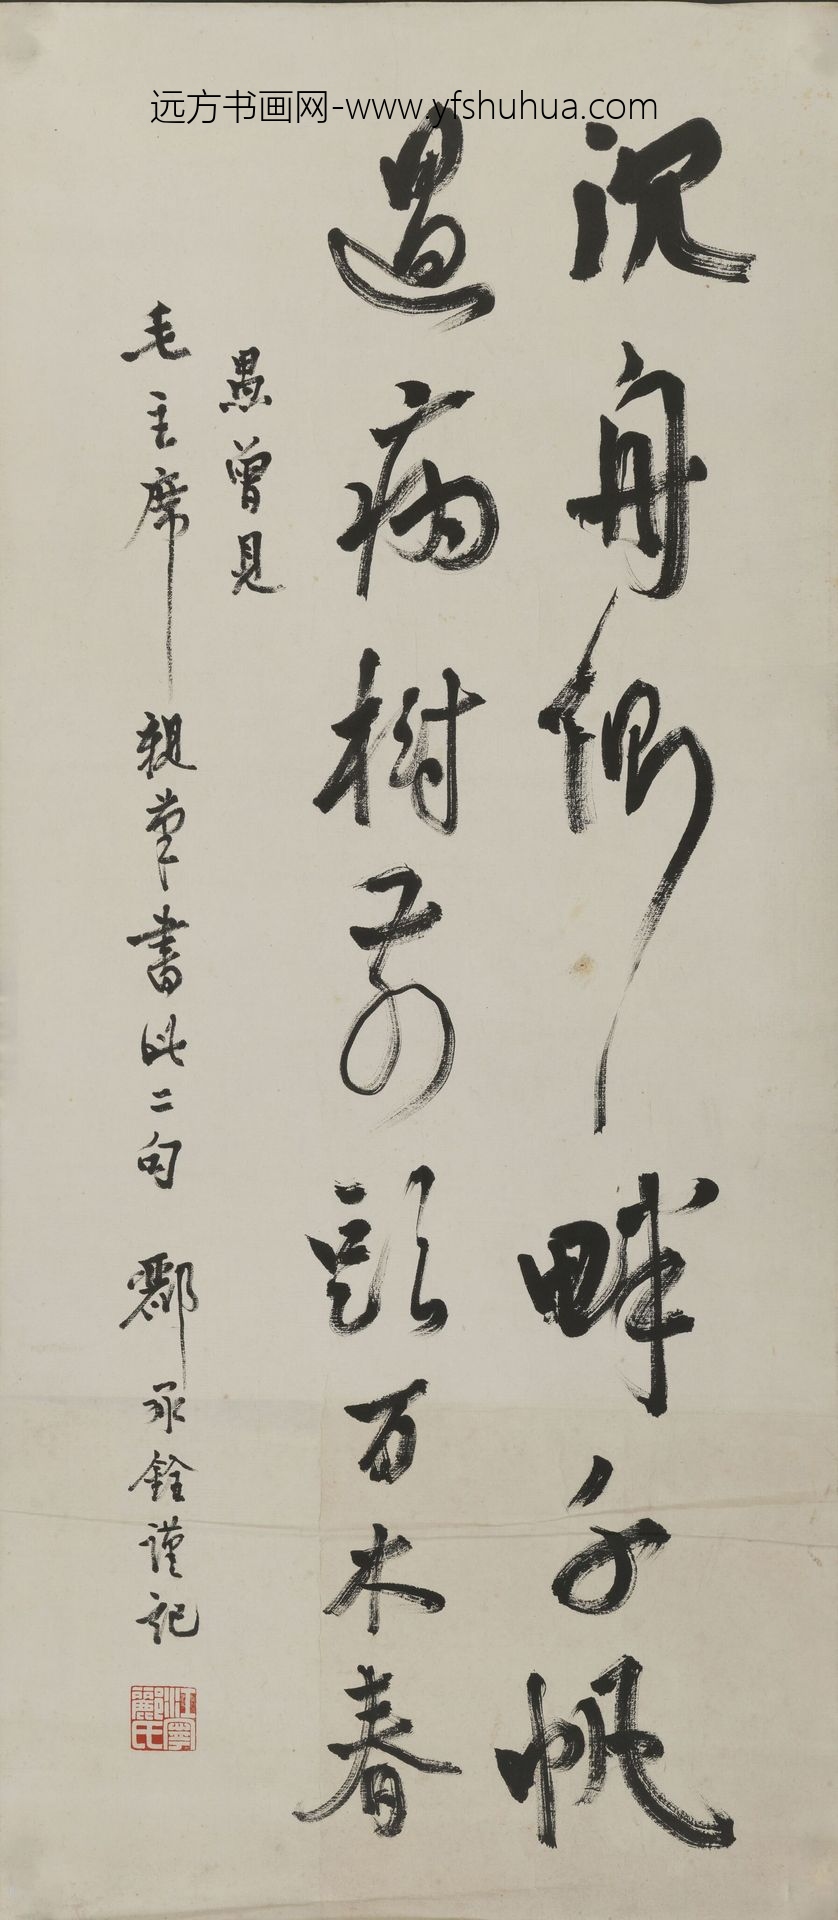 远方书画网-www.yfshuhua.com
沉舟側畔千帆
過病樹前頭万木春
愚曾見
毛主席親筆書此二句 酈承銓謹記
江寧酈氏